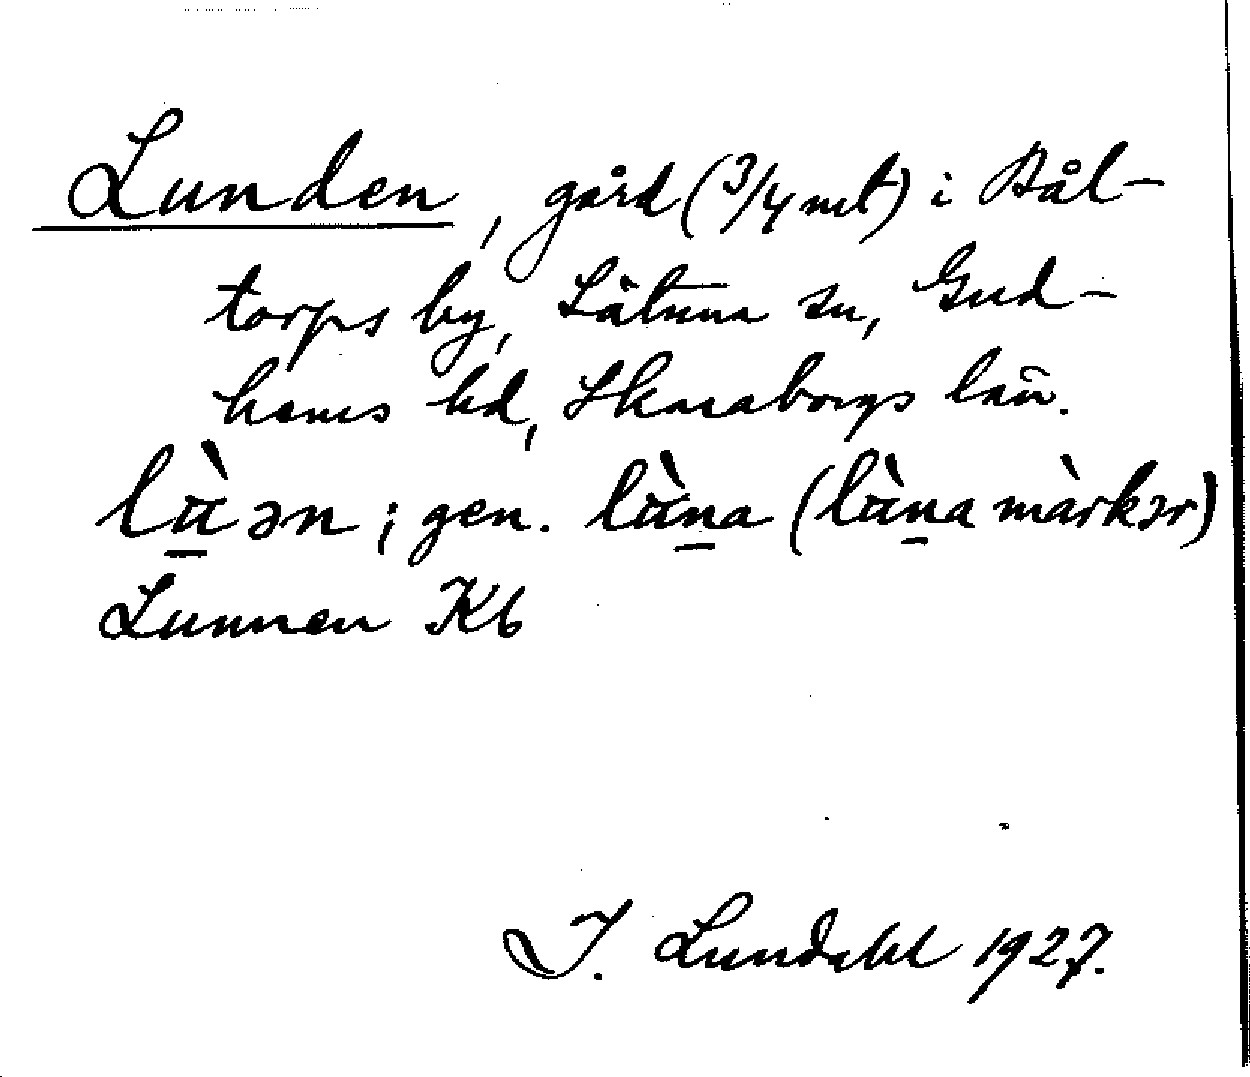 Lunden, gård (3/4 mt) i Stål-
torps by, Sätuna sn, Gud-
hems hd, Skaraborgs län.
lùən; gen. lùna (lùna màrkər)
Lunnen Kb
I. Lundahl 1927.